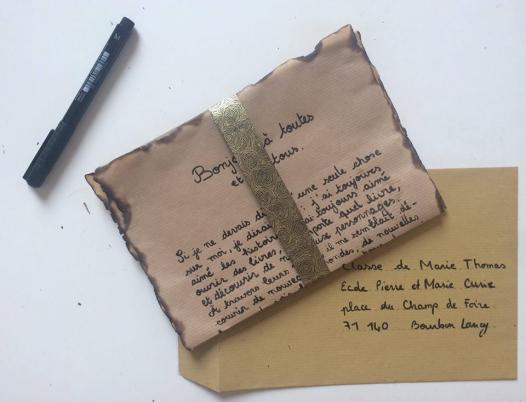 Bonj à toutes
et tous.
Si je ne devais d une seule chose
sur moi, je dirai j'ai toujours
aimé les histoir ai toujours aimé
ouvrir des livres, porte quel livre,
et découvrir de n use personnages,
à travers leurs il me semblait dé-
couvrir de nouve ondes, de nouvelles
Classe de Marie Thomas
Ecole Pierre et Marie Curie
place du Champ de Foire
71 140 Bourbon Lancy